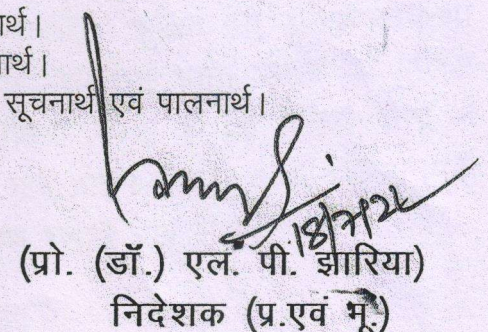 र्थ।
ार्थ।
सूचनार्थ एवं पालनार्थ।
(प्रो. (डॉ.) एल. पी. झारिया)
निदेशक (प्र.एवं भू.)